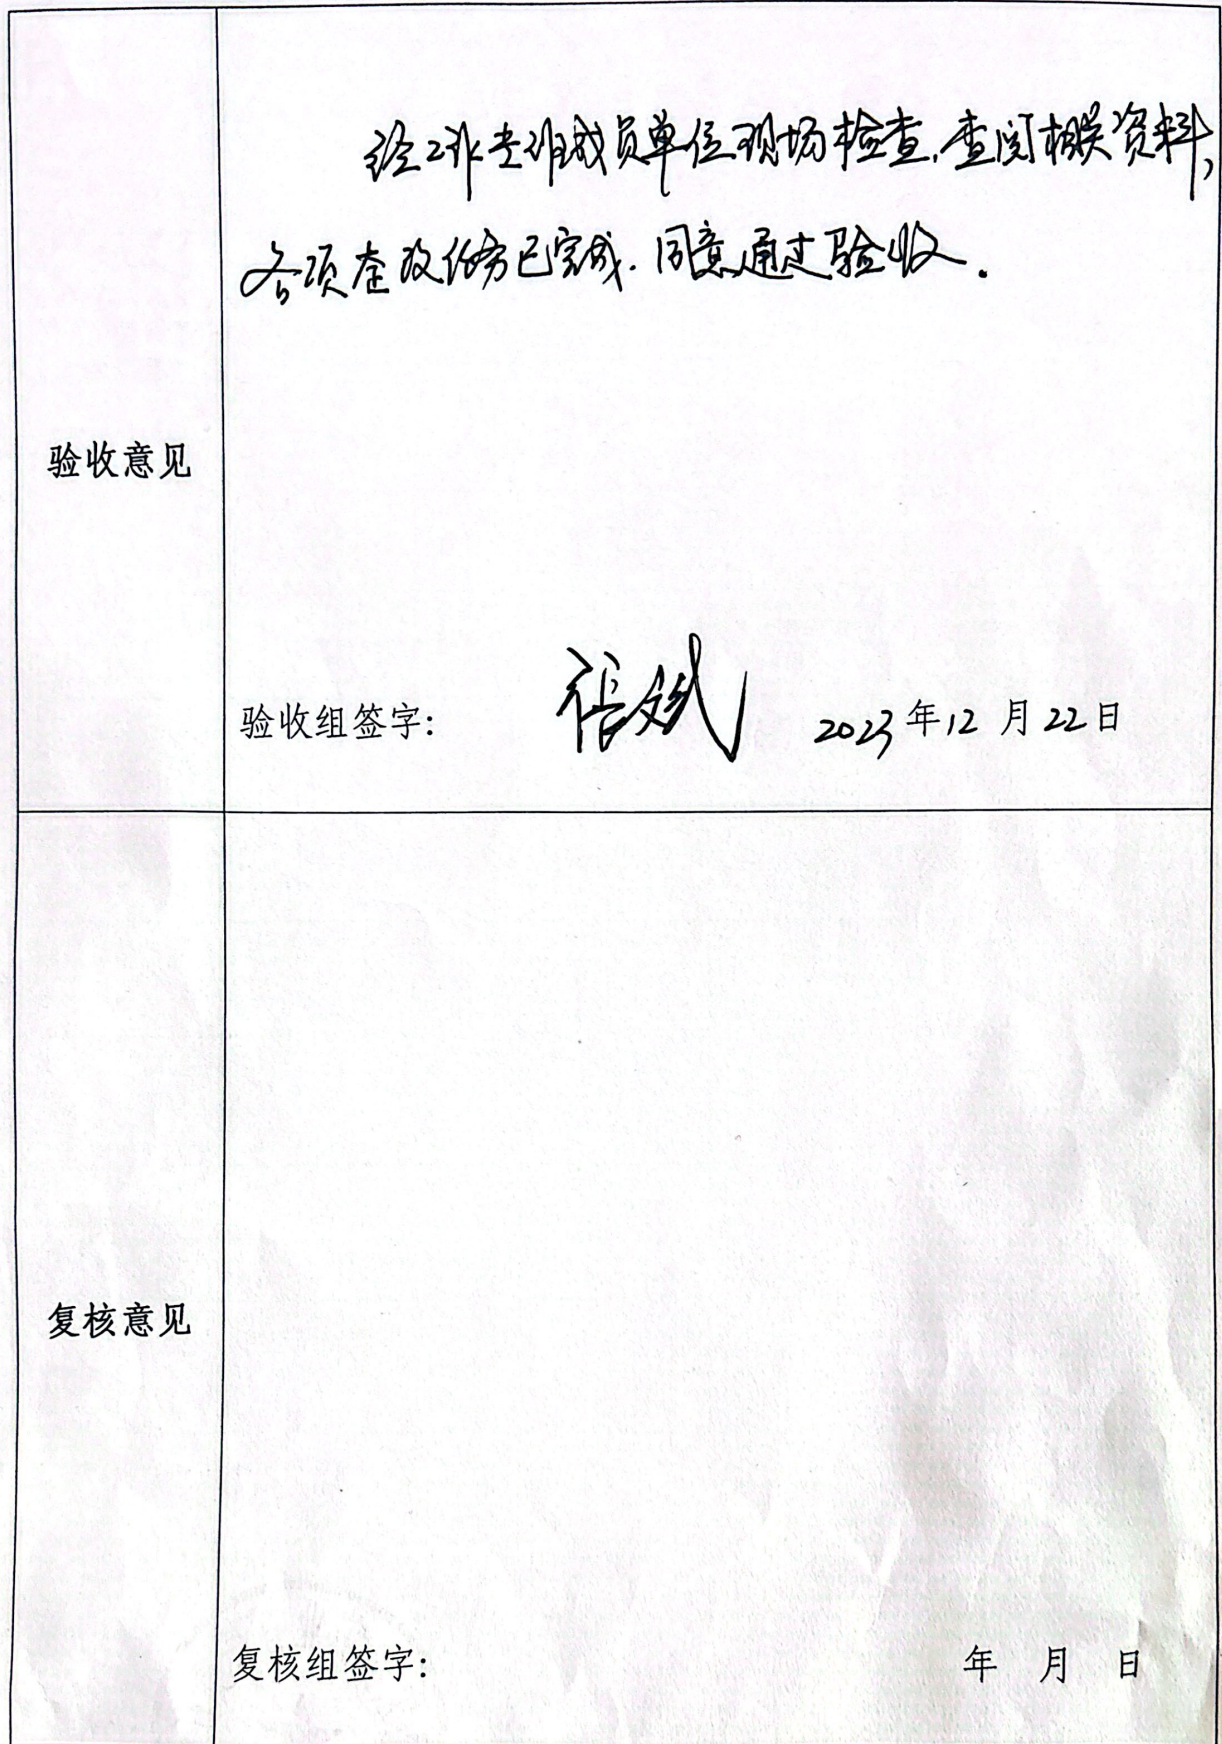 经工作专班成员单位现场检查,查阅相关资料,
各项整改任务已完成.同意通过验收.
验收意见
验收组签字: 张斌 2023年12月22日
复核意见
复核组签字: 年 月 日